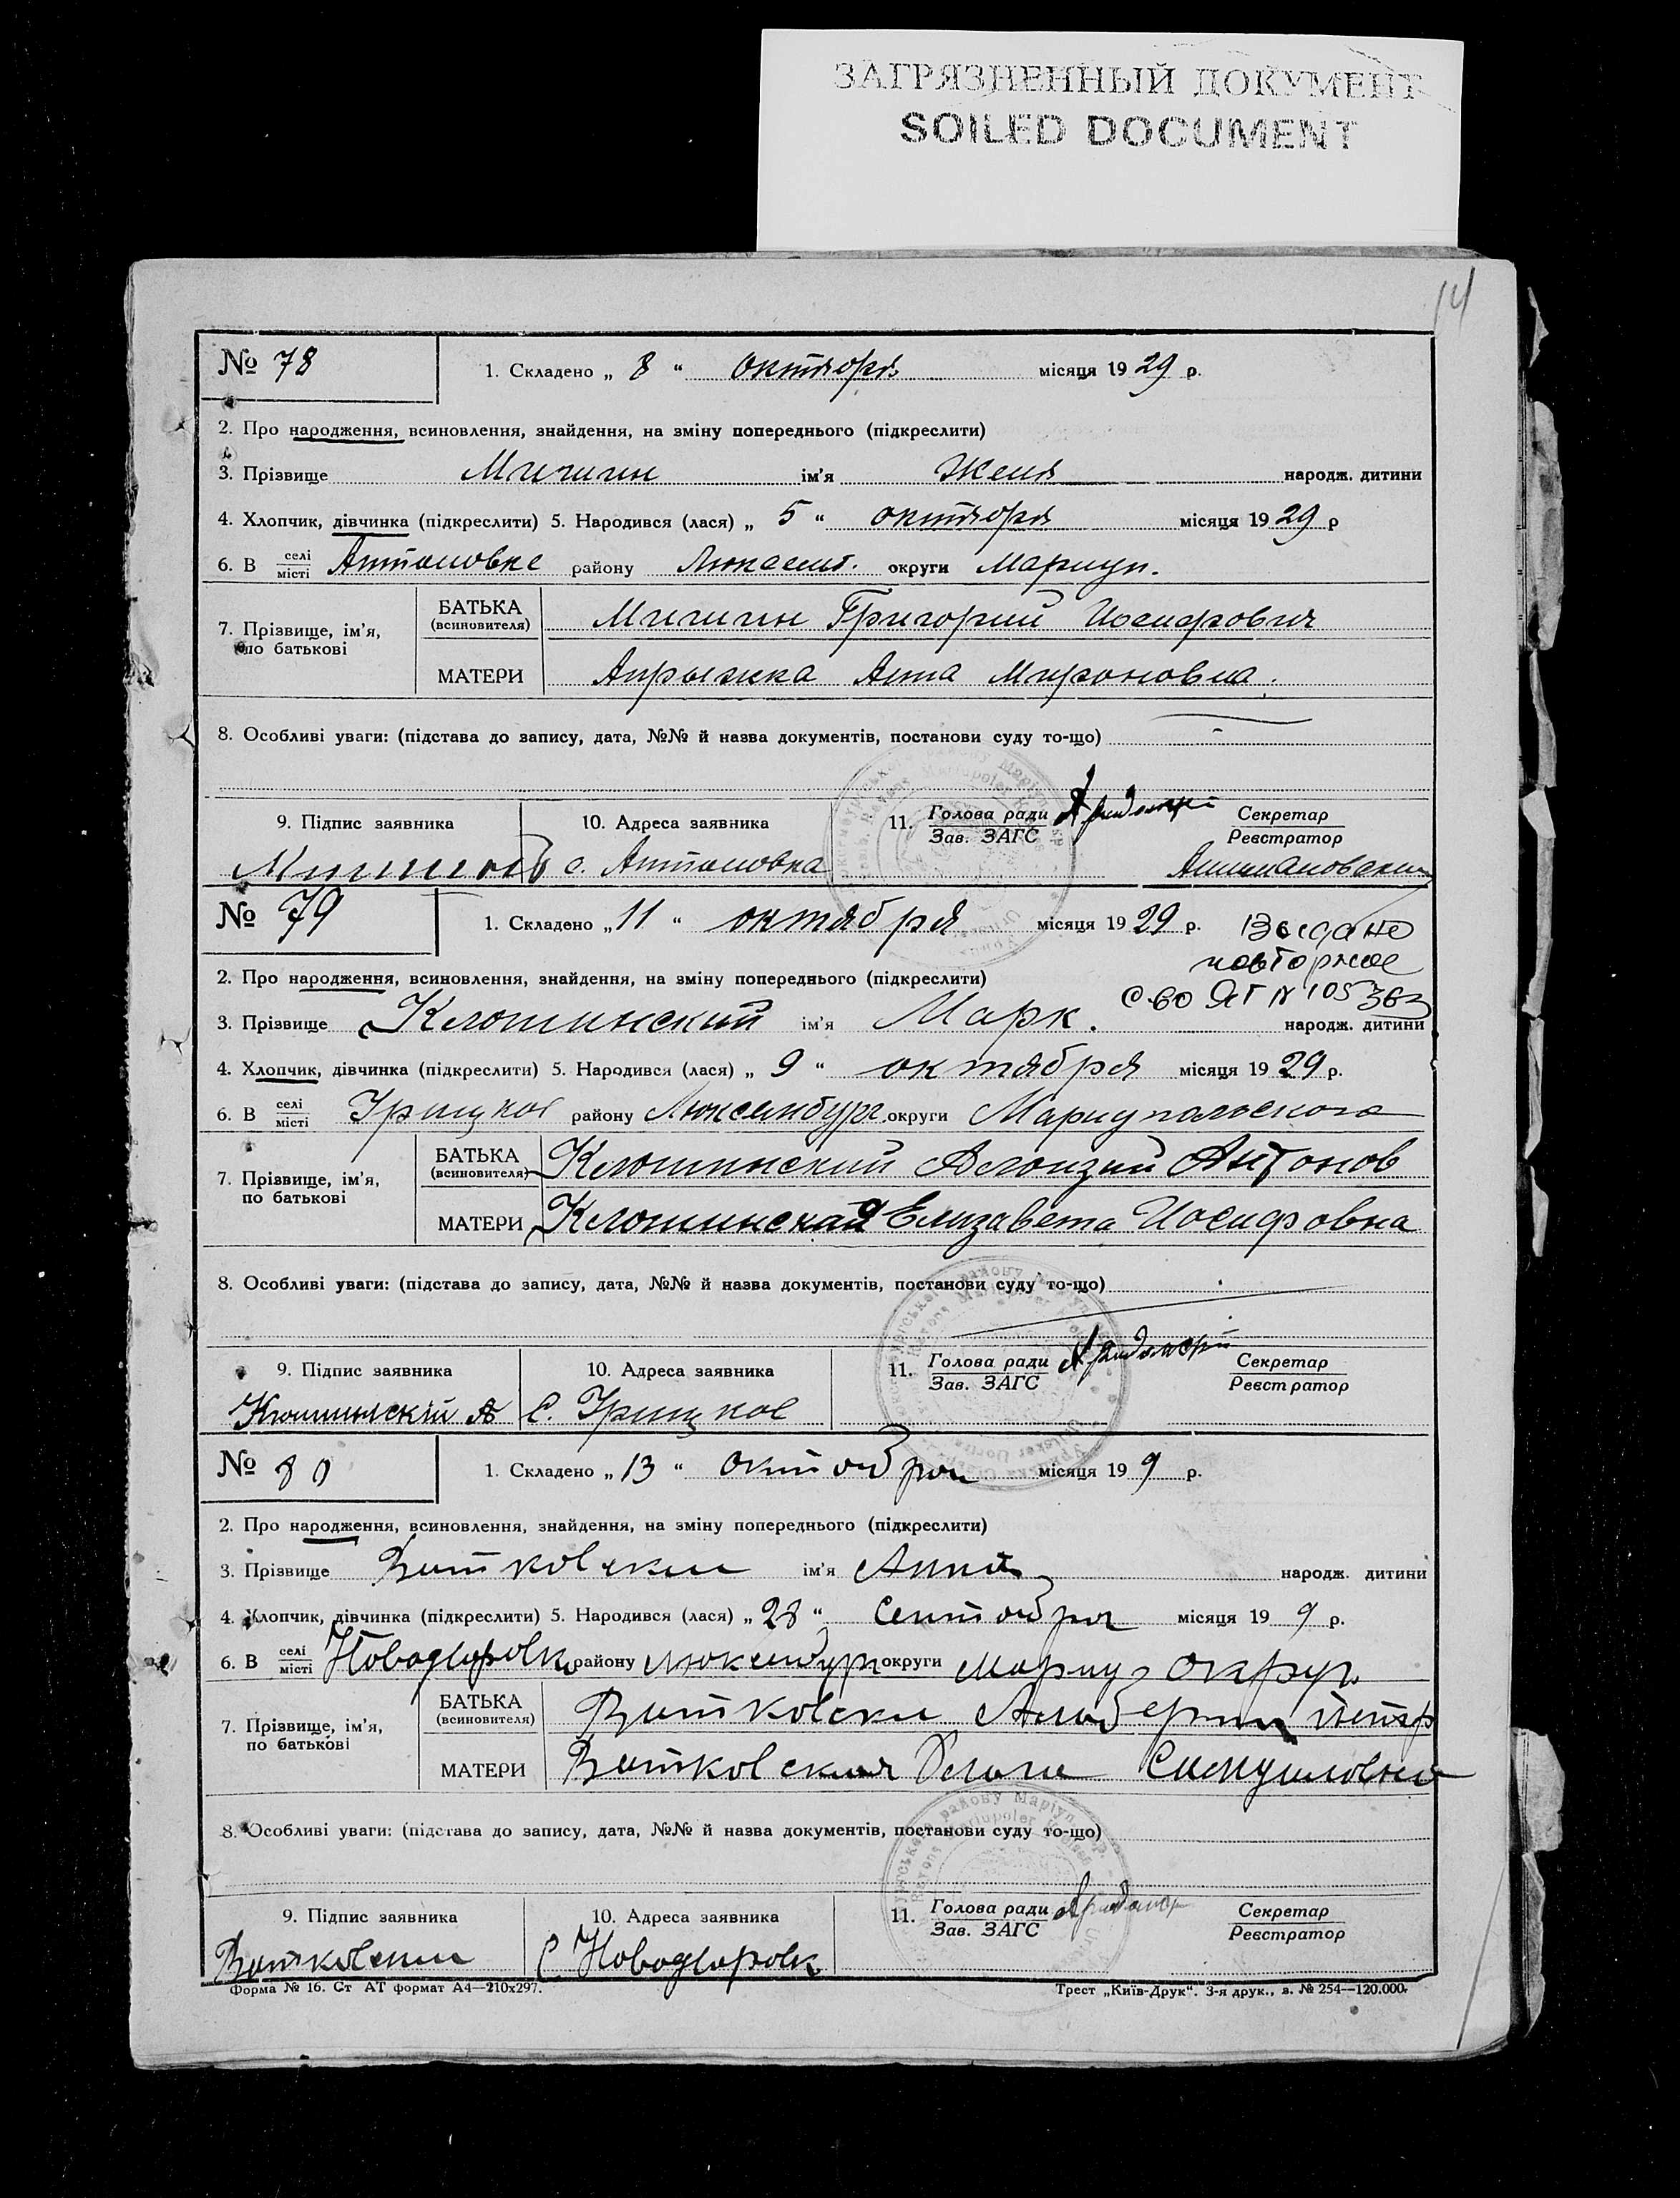 ЗАГРЯЗНЕННЫЙ ДОКУМЕНТ
SOILED DOCUMENT
14
№ 78 1. Складено „ 8 “ октября місяця 1929 р.
2. Про народження, всиновлення, знайдення, на зміну попереднього (підкреслити)
3. Прізвище ім'я Женя народж. дитини
4. Хлопчик, дівчинка (підкреслити) 5. Народився (лася) „ 5 “ октября місяця 1929 р
6. В селі/місті Антоновке району округи Мариуп.
7. Прізвище, ім'я, по батькові
БАТЬКА (всиновителя) Григорий Иосифович
МАТЕРИ Анна Мироновна
8. Особливі уваги: (підстава до запису, дата, №№ й назва документів, постанови суду то-що)
9. Підпис заявника 10. Адреса заявника 11. Голова ради/Зав. ЗАГС Секретар/Реєстратор
с. Антоновка
№ 79 1. Складено „ 11 “ октября місяця 1929 р. Выдано
повторное
2. Про народження, всиновлення, знайдення, на зміну попереднього (підкреслити)
с-во ЯГ № 105363
3. Прізвище Клошинский ім'я Марк. народж. дитини
4. Хлопчик, дівчинка (підкреслити) 5. Народився (лася) „ 9 “ октября місяця 1929 р.
6. В селі/місті Урицкое району Люксембург. округи Мариупольского
7. Прізвище, ім'я, по батькові
БАТЬКА (всиновителя) Клошинский Алоизий Антонов
МАТЕРИ Клошинская Елизавета Иосифовна
8. Особливі уваги: (підстава до запису, дата, №№ й назва документів, постанови суду то-що)
9. Підпис заявника 10. Адреса заявника 11. Голова ради/Зав. ЗАГС Секретар/Реєстратор
С. Урицкое
№ 80 1. Складено „ 13 “ октоября місяця 199 р.
2. Про народження, всиновлення, знайдення, на зміну попереднього (підкреслити)
3. Прізвище Витковски ім'я Анна народж. дитини
4. Хлопчик, дівчинка (підкреслити) 5. Народився (лася) „ 28 “ місяця 19 9 р.
6. В селі/місті району округи Мариуп округ
7. Прізвище, ім'я, по батькові
БАТЬКА (всиновителя) Витковски Альберт Петр
МАТЕРИ Витковская
8. Особливі уваги: (підстава до запису, дата, №№ й назва документів, постанови суду то-що)
9. Підпис заявника 10. Адреса заявника 11. Голова ради/Зав. ЗАГС Секретар/Реєстратор
Витковски
Форма № 16. Ст АТ формат А4—210х297. Трест „Київ-Друк“. 3-я друк., з. № 254—120.000.